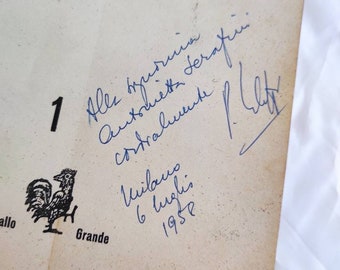 Alla signorina
Antonietta Serafini
cordialmente
Milano
6 luglio
1958
1
allo
Grande